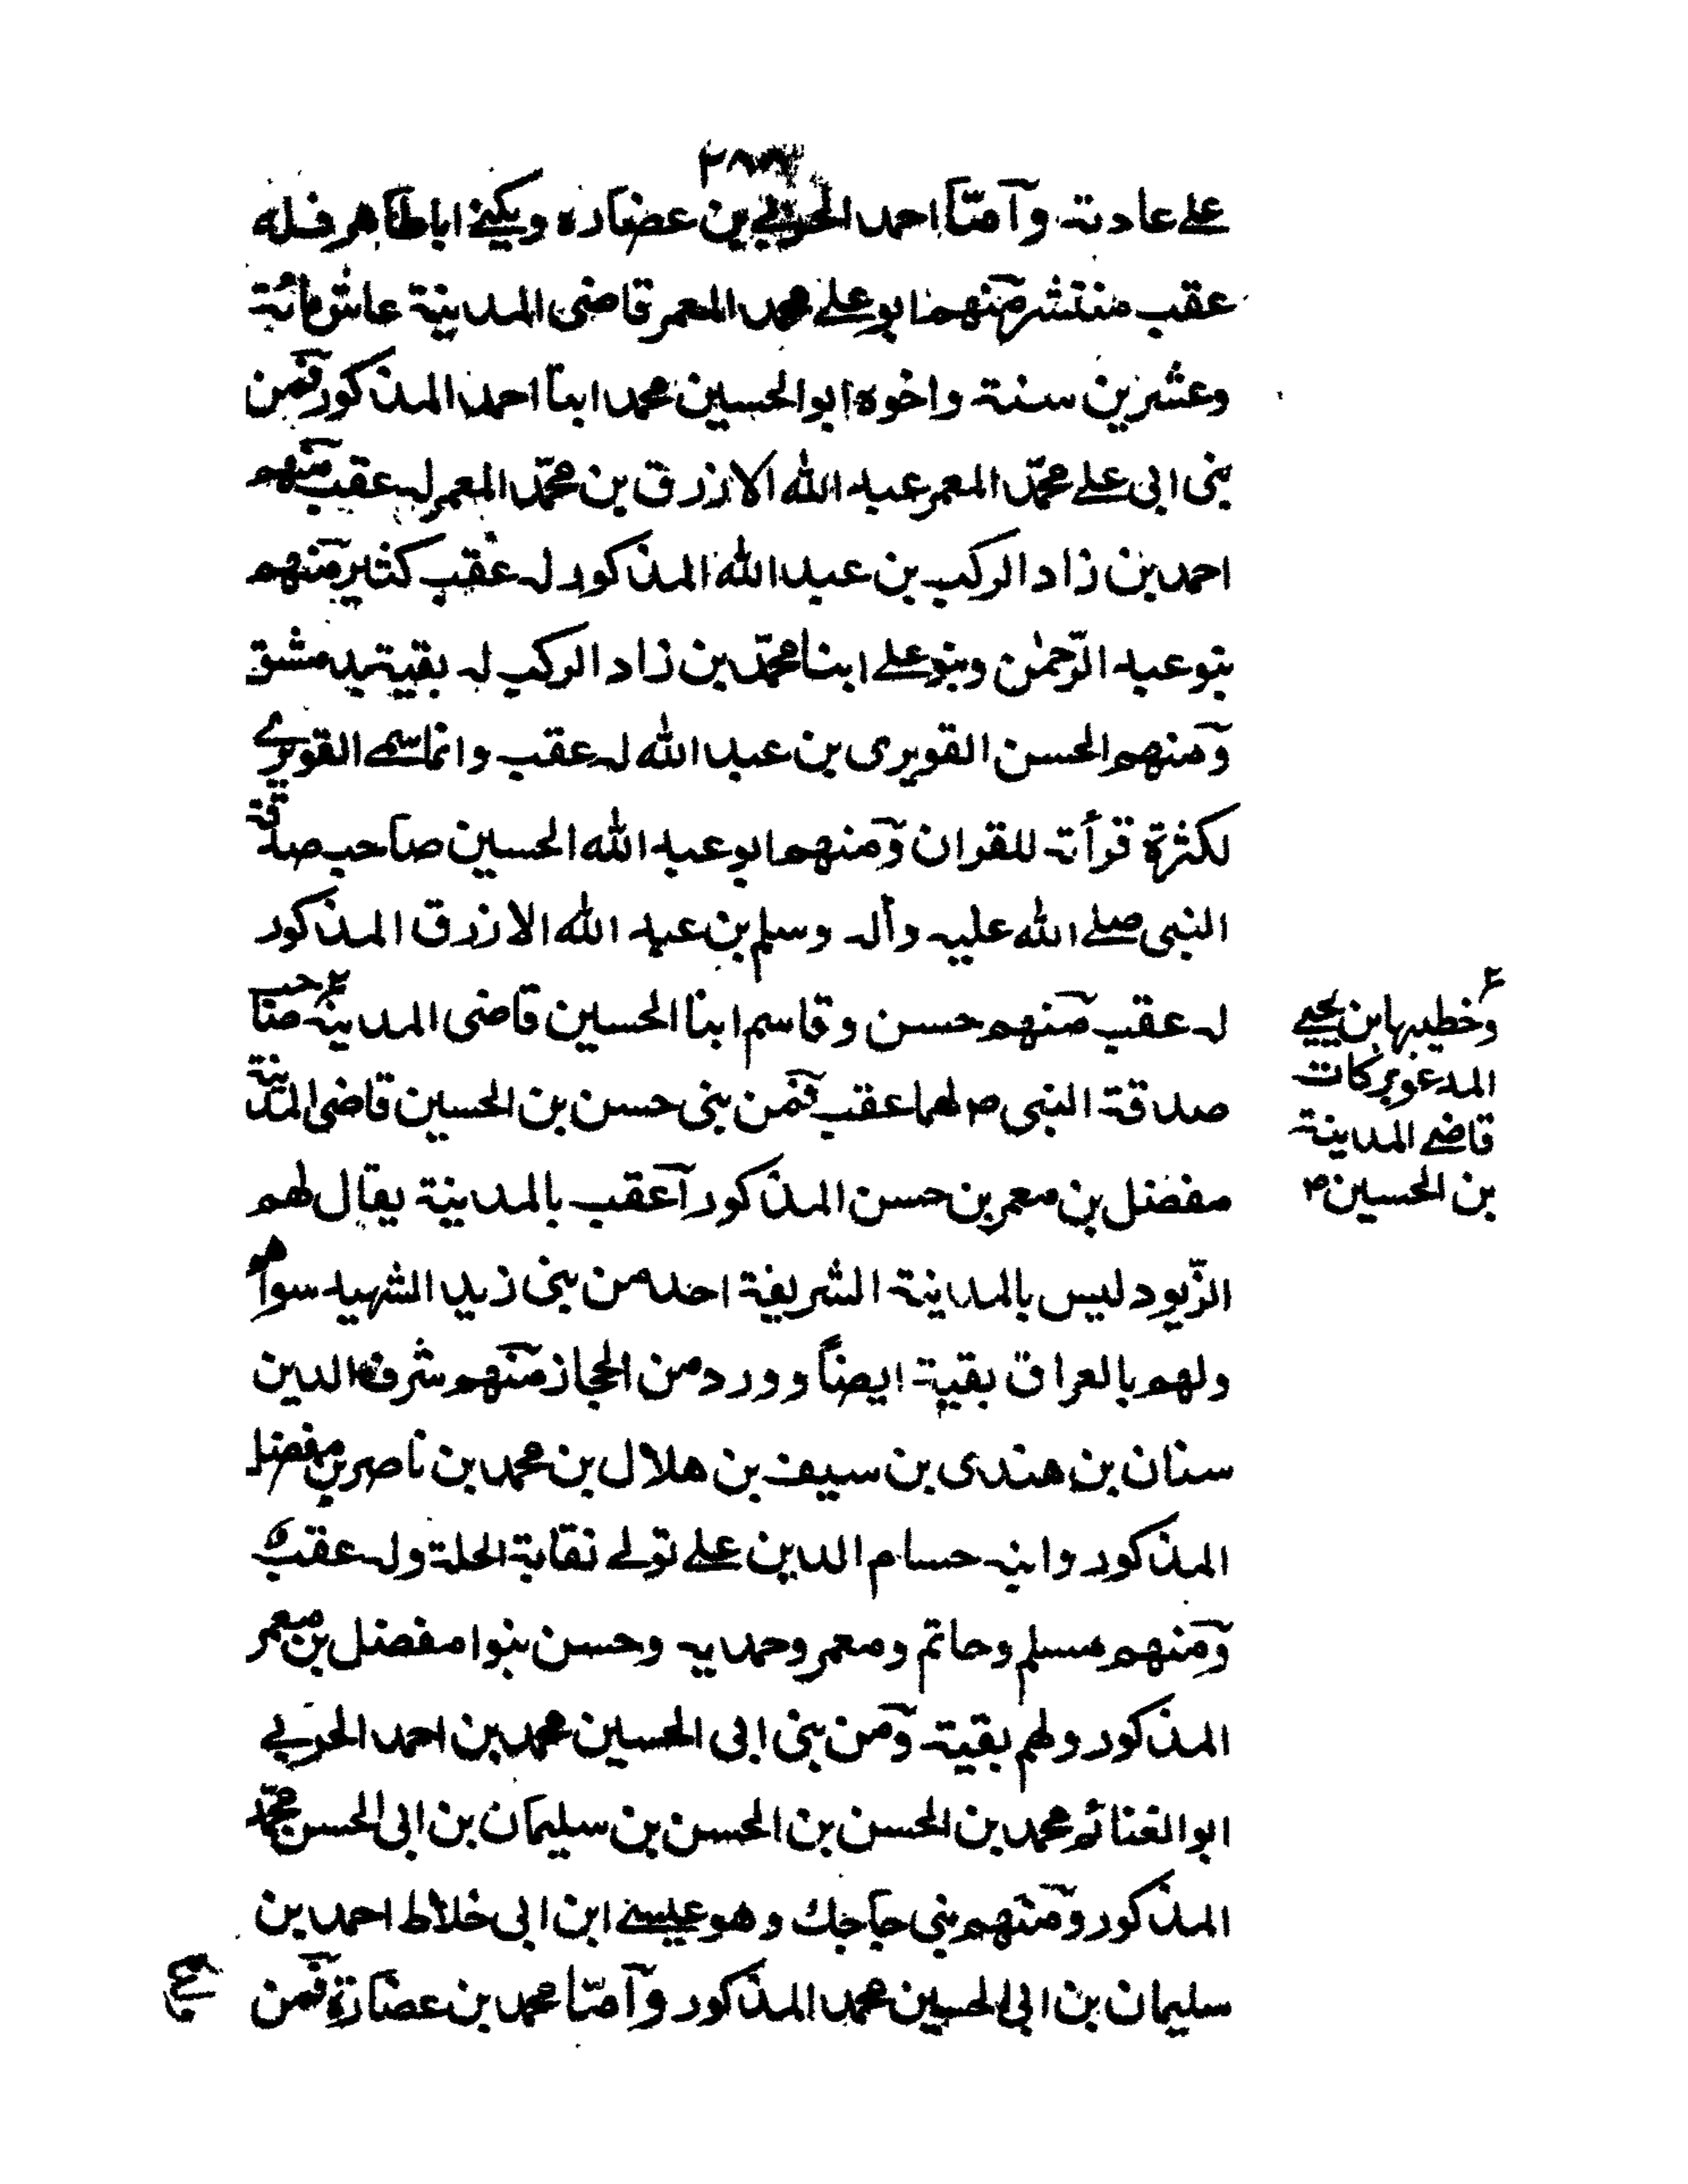 ٢٨٨
علے عادتہ وآمّا احمد الحربي بن عضاره ويكنے اباطاهر فله
عقب منتشر منهم ابو علے محمد المعمر قاضى المدينة عاش مائة
وعشرين سنة واخوه ابوالحسين محمد ابنا احمد المذكور فمن
بنى ابى علے محمّد المعمر عبد الله الازرق بن محمّد المعمر له عقب منهم
احمد بن زاد الركب بن عبد الله المذكور له عقب كثير منهم
بنو عبد الرّحمٰن وبنو علے ابنا محمّد بن زاد الركب له بقية بدمشق
ومنهم الحسن القويرى بن عبد الله له عقب وانما سمے القويرے
لكثرة قرأته للقران ومنهم ابو عبد الله الحسين صاحب صدقة
النبى صلے الله عليه وأله وسلم بن عبد الله الازرق المذكور
له عقب منهم حسن وقاسم ابنا الحسين قاضى المدينة ٢ صاحب
صدقة النبى ص لهما عقب فمن بنى حسن بن الحسين قاضى المدينة
مفضل بن معمر بن حسن المذكور آعقب بالمدينة يقال لهم
الزّيود ليس بالمدينة الشريفة احد من بنى زيد الشهيد سواهم
ولهم بالعراق بقية ايضاً وورد من الحجاز منهم شرف الدين
سنان بن هندى بن سيف بن هلال بن محمد بن ناصر بن مفضل
المذكور وابنه حسام الدين علے تولے نقابة الحلة وله عقب
ومنهم مسلم وحاتم ومعمر وحمديه وحسن بنوا مفضل بن معمر
المذكور ولهم بقية ومن بنى ابى الحسين محمد بن احمد الحربے
ابو الغنائم محمد بن الحسن بن الحسن بن سليمان بن ابى الحسن محمّد
المذكور ومنهم بنى جاجك وهو عيسے ابن ابى خلاط احمد بن
سليمان بن ابى الحسين محمد المذكور وآمّا محمد بن عضارة فمن
٢
وخطيبها بن يحيے
المدعو بركات
قاضے المدينة
بن الحسين ص